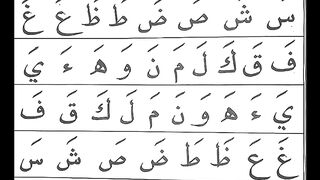 سَ شَ صَ ضَ طَ ظَ عَ غَ
فَ قَ كَ لَ مَ نَ وَ هَ ءَ يَ
يَ ءَ هَ وَ نَ مَ لَ كَ قَ فَ
غَ عَ ظَ طَ ضَ صَ شَ سَ